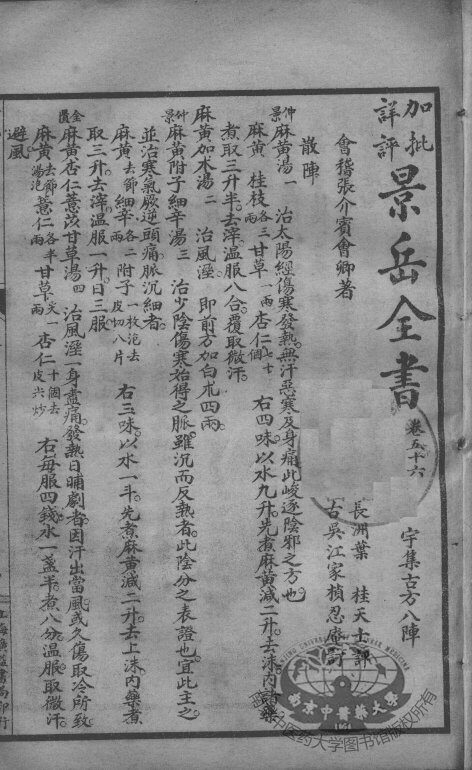 加批詳評景岳全書 卷五十六 宇集古方八陣
會稽張介賓會卿著
長洲葉 桂天士評
古吳江家楨忍庵訂
散陣
仲景麻黃湯一 治太陽經傷寒發熱無汗惡寒及身痛此峻逐陰邪之方也
麻黃 桂枝各三兩 甘草一兩 杏仁七十個 右四味以水九升先煮麻黃減二升去沫內諸藥
煮取三升半去滓溫服八合覆取微汗
麻黃加朮湯二 治風溼 即前方加白朮四兩
仲景麻黃附子細辛湯三 治少陰傷寒始得之脈雖沉而反熱者此陰分之表證也宜此主之
並治寒氣厥逆頭痛脈沉細者
麻黃去節 細辛各二兩 附子一枚泡去皮切八片 右三味以水一斗先煮麻黃減二升去上沫內藥煮
取三升去滓溫服一升日三服
金匱麻黃杏仁薏苡甘草湯四 治風溼一身盡痛發熱日晡劇者因汗出當風或久傷取冷所致
麻黃去節湯泡 薏仁各半兩 甘草炙一兩 杏仁十個去皮尖炒 右每服四錢水一盞半煮八分溫服取微汗
避風
南京中醫藥大學
1954
南京中医药大学图书馆版权所有